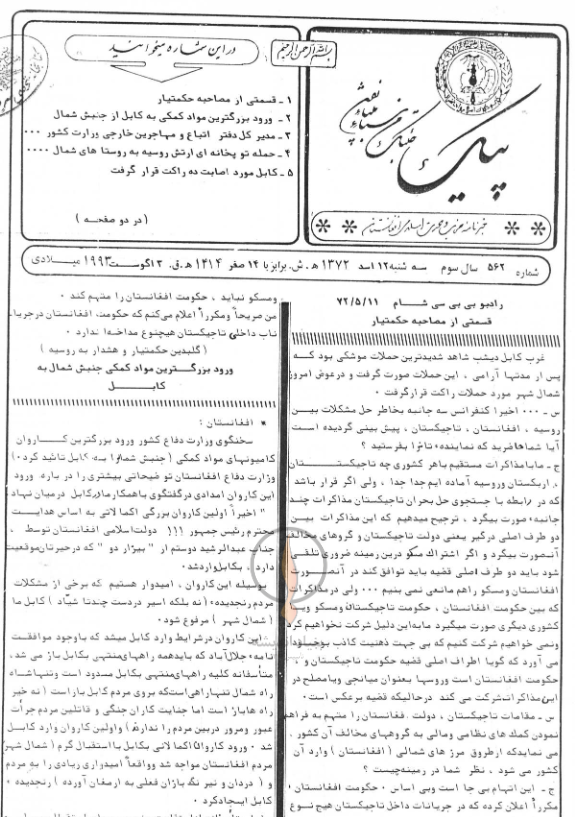 بسم الله الرحمن الرحیم
در این شماره میخوانید
۱ - قسمتی از مصاحبه حکمتیار
۲ - ورود بزرگترین مواد کمکی به کابل از جنبش شمال
۳ - مدیر کل دفتر اتباع و مهاجرین خارجی وزارت کشور ۰۰۰
۴ - حمله توپخانه ای ارتش روسیه به روستا های شمال ۰۰۰۰
۵ - کابل مورد اصابت ده راکت قرار گرفت
( در دو صفحه )
پیک
خبرنامه حزب وحدت اسلامی افغانستان
شماره ۵۶۲ سال سوم سه شنبه ۱۲ اسد ۱۳۷۲ ه.ش. برابر با ۱۴ صفر ۱۴۱۴ ه.ق. ۳ اگوست ۱۹۹۳ میلادی
رادیو بی بی سی شام ۷۲/۵/۱۱
قسمتی از مصاحبه حکمتیار
غرب کابل دیشب شاهد شدیدترین حملات موشکی بود کـه
پس از مدتها آرامی ، این حملات صورت گرفت و در عوض امروز
شمال شهر مورد حملات راکت قرار گرفت ۰
س - ۰۰۰ اخیرا کنفرانس سه جانبه بخاطر حل مشکلات بیـن
روسیه ، افغانستان ، تاجیکستان ، پیش بینی گردیده اسـت
آیا شما حاضرید که نماینده تانرا بفرستید ؟
ج - ما با مذاکرات مستقیم با هر کشوری چه تاجیکستـــان
، ازبکستان و روسیه آماده ایم جدا جدا ، ولی اگر قرار باشد
که در رابطه با جستجوی حل بحران تاجیکستان مذاکرات چند
جانبه صورت بگیرد ، ترجیح میدهیم که این مذاکرات بیـن
دو طرف اصلی درگیر یعنی دولت تاجیکستان و گروهای مخالف
آنصورت بگیرد و اگر اشتراک مسکو درین زمینه ضروری تلقـی
شود باید دو طرف اصلی قضیه باید توافق کند در آنصـورت
افغانستان و مسکو را هم مانعی نمی بینیم ۰۰۰ ولی در مذاکرات
که بین حکومت افغانستان ، حکومت تاجیکستان و مسکو و یـا
کشوری دیگری صورت میگیرد ما به این دلیل شرکت نخواهیم کرد
ونمی خواهیم شرکت کنیم که بی جهت ذهنیت کاذب بوجـود
می آورد که گویا اطراف اصلی قضیه حکومت تاجیکستان و
حکومت افغانستان است وروسها بعنوان میانجی ویا مصلح در
این مذاکرات شرکت می کند در حالیکه قضیه بر عکس است ۰
س - مقامات تاجیکستان ، دولت افغانستان را متهم به فراهم
نمودن کمک های نظامی ومالی به گروههای مخالف آن کشور
می نمایدکه از طریق مرز های شمالی ( افغانستان ) وارد آن
کشور می شود ، نظر شما در زمینه چیست ؟
ج - این اتهام بی جا است وبی اساس ۰ حکومت افغانستان
مکرراً اعلان کرده که در جریانات داخل تاجیکستان هیچ نـوع
ومسکو نباید ، حکومت افغانستان را متهم کند ۰
من صریحاً و مکررا ً اعلام می‌کنم که حکومت افغانستان در جریـا-
نات داخلی تاجیکستان هیچنوع مداخله ای ندارد ۰
( گلبدین حکمتیار و هشدار به روسیه )
ورود بزرگـترین مواد کمکی جنبش شمال به
کابـــــل
* افغانستان :
سخنگوی وزارت دفاع کشور ورود بزرگترین کــاروان
کامیونهای مواد کمکی ( جنبش شمال را بـه کابل تائید کرد ۰)
وزارت دفاع افغانستان توضیحاتی بیشتری را در باره ورود
این کاروان امدادی در گفتگوی با همکار ما در کابل در میان نهاد
" اخیراً اولین کاروان بزرگی اکمالاتی به اساس هدایـــت
محترم رئیس جمهور !!! دولت اسلامی افغانستان توسط ،
جناب عبدالرشید دوستم از " بیزار دو " که در حیرتان موقعیت
دارد ، بکابل وارد شد ۰
بوسیله این کاروان ، امیدوار هستیم که برخی از مشکلات
مردم رنجدیده ( نه بلکه اسیر دردست چند تا شیّاد ) کابل ما
( شمال شهر ) مرفوع شود ۰
این کاروان در شرایط وارد کابل میشد که باوجود موافقـت
نامه جلال آباد که باید همه راههای منتهی بکابل باز می شد،
متأسفانه کلیه راههای منتهی بکابل مسدود است وتنها شـاه
راه شمال تنها راهی است که بروی مردم کابل باز است ( نه خیر
راه ها باز است اما جنایت کاران جنگی و قاتلین مردم جرأت
عبور و مرور در بین مردم را ندارند ) و اولین کاروان وارد کابــل
شد ۰ ورود کاروان اکمالاتی بکابل با استقبال گرم ( شمال شهر )
مردم افغانستان مواجه شد و واقعاً امیدواری زیادی را به مردم
و ( دردان و نیرنگ بازان فعلی به ارمغان آورده ) رنجدیده ۰
کابل ایجاد کرد ۰